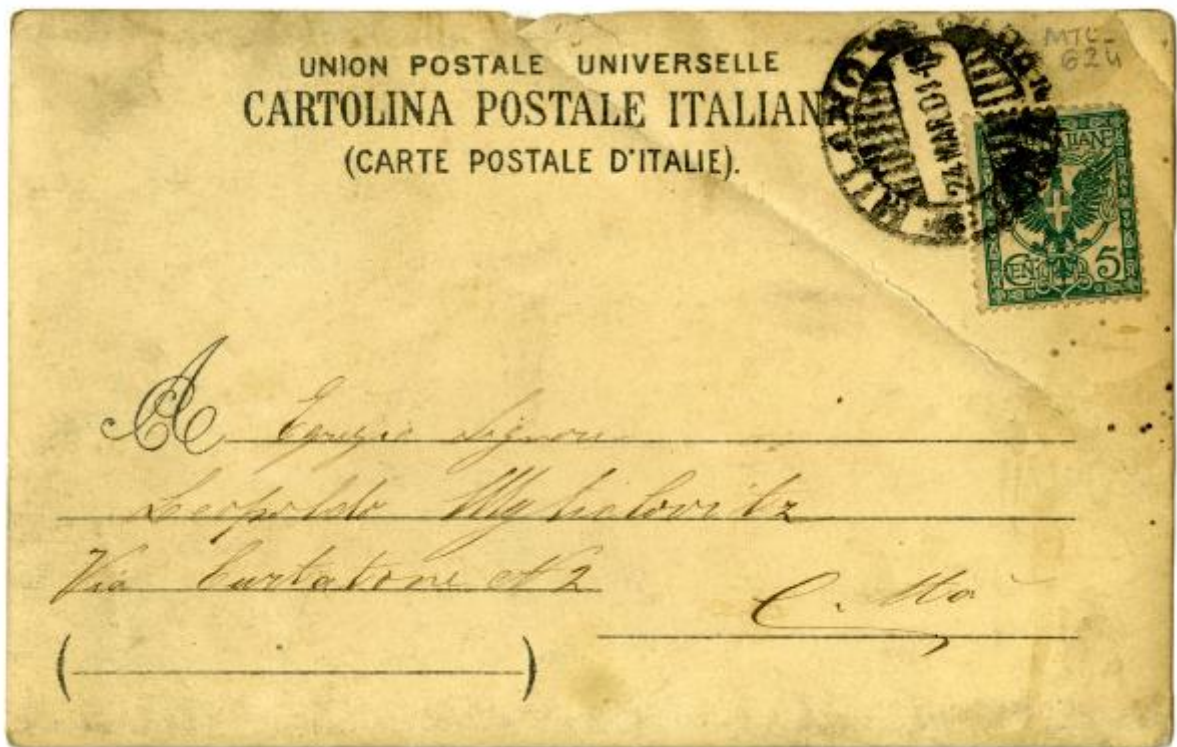 UNION POSTALE UNIVERSELLE
CARTOLINA POSTALE ITALIANA
(CARTE POSTALE D'ITALIE).
MTL-
624
MILANO
24 MAR 01
CENT. 5
A Egregio Signore
Leopoldo
Via Curtatone N 2
Città